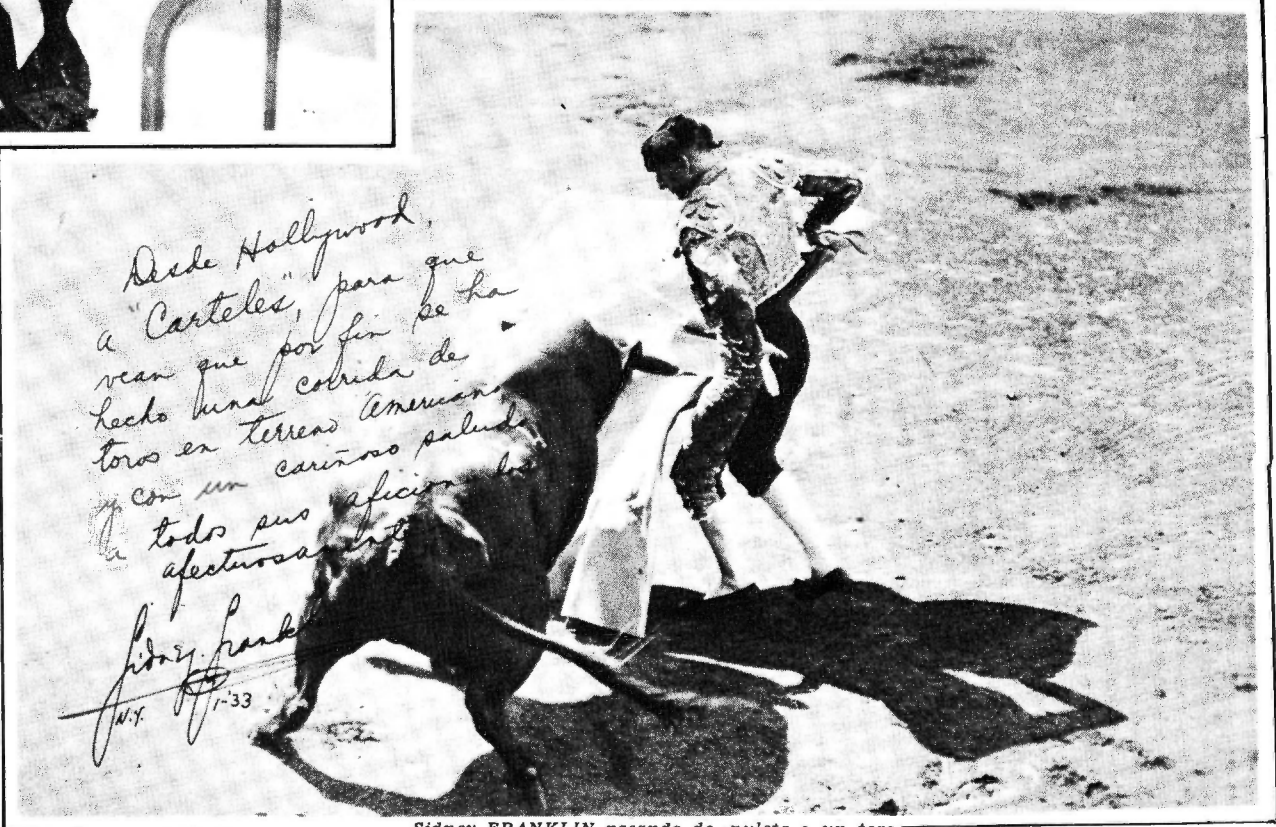 Desde Hollywood,
a "Carteles", para que
vean que por fin se ha
hecho una corrida de
toros en terreno Americano
y con un cariñoso saludo
a todos sus aficion
afectuosamente
Sidney Frankl
N.Y. 1-'33
Sidney FRANKLIN pasando de muleta a un toro